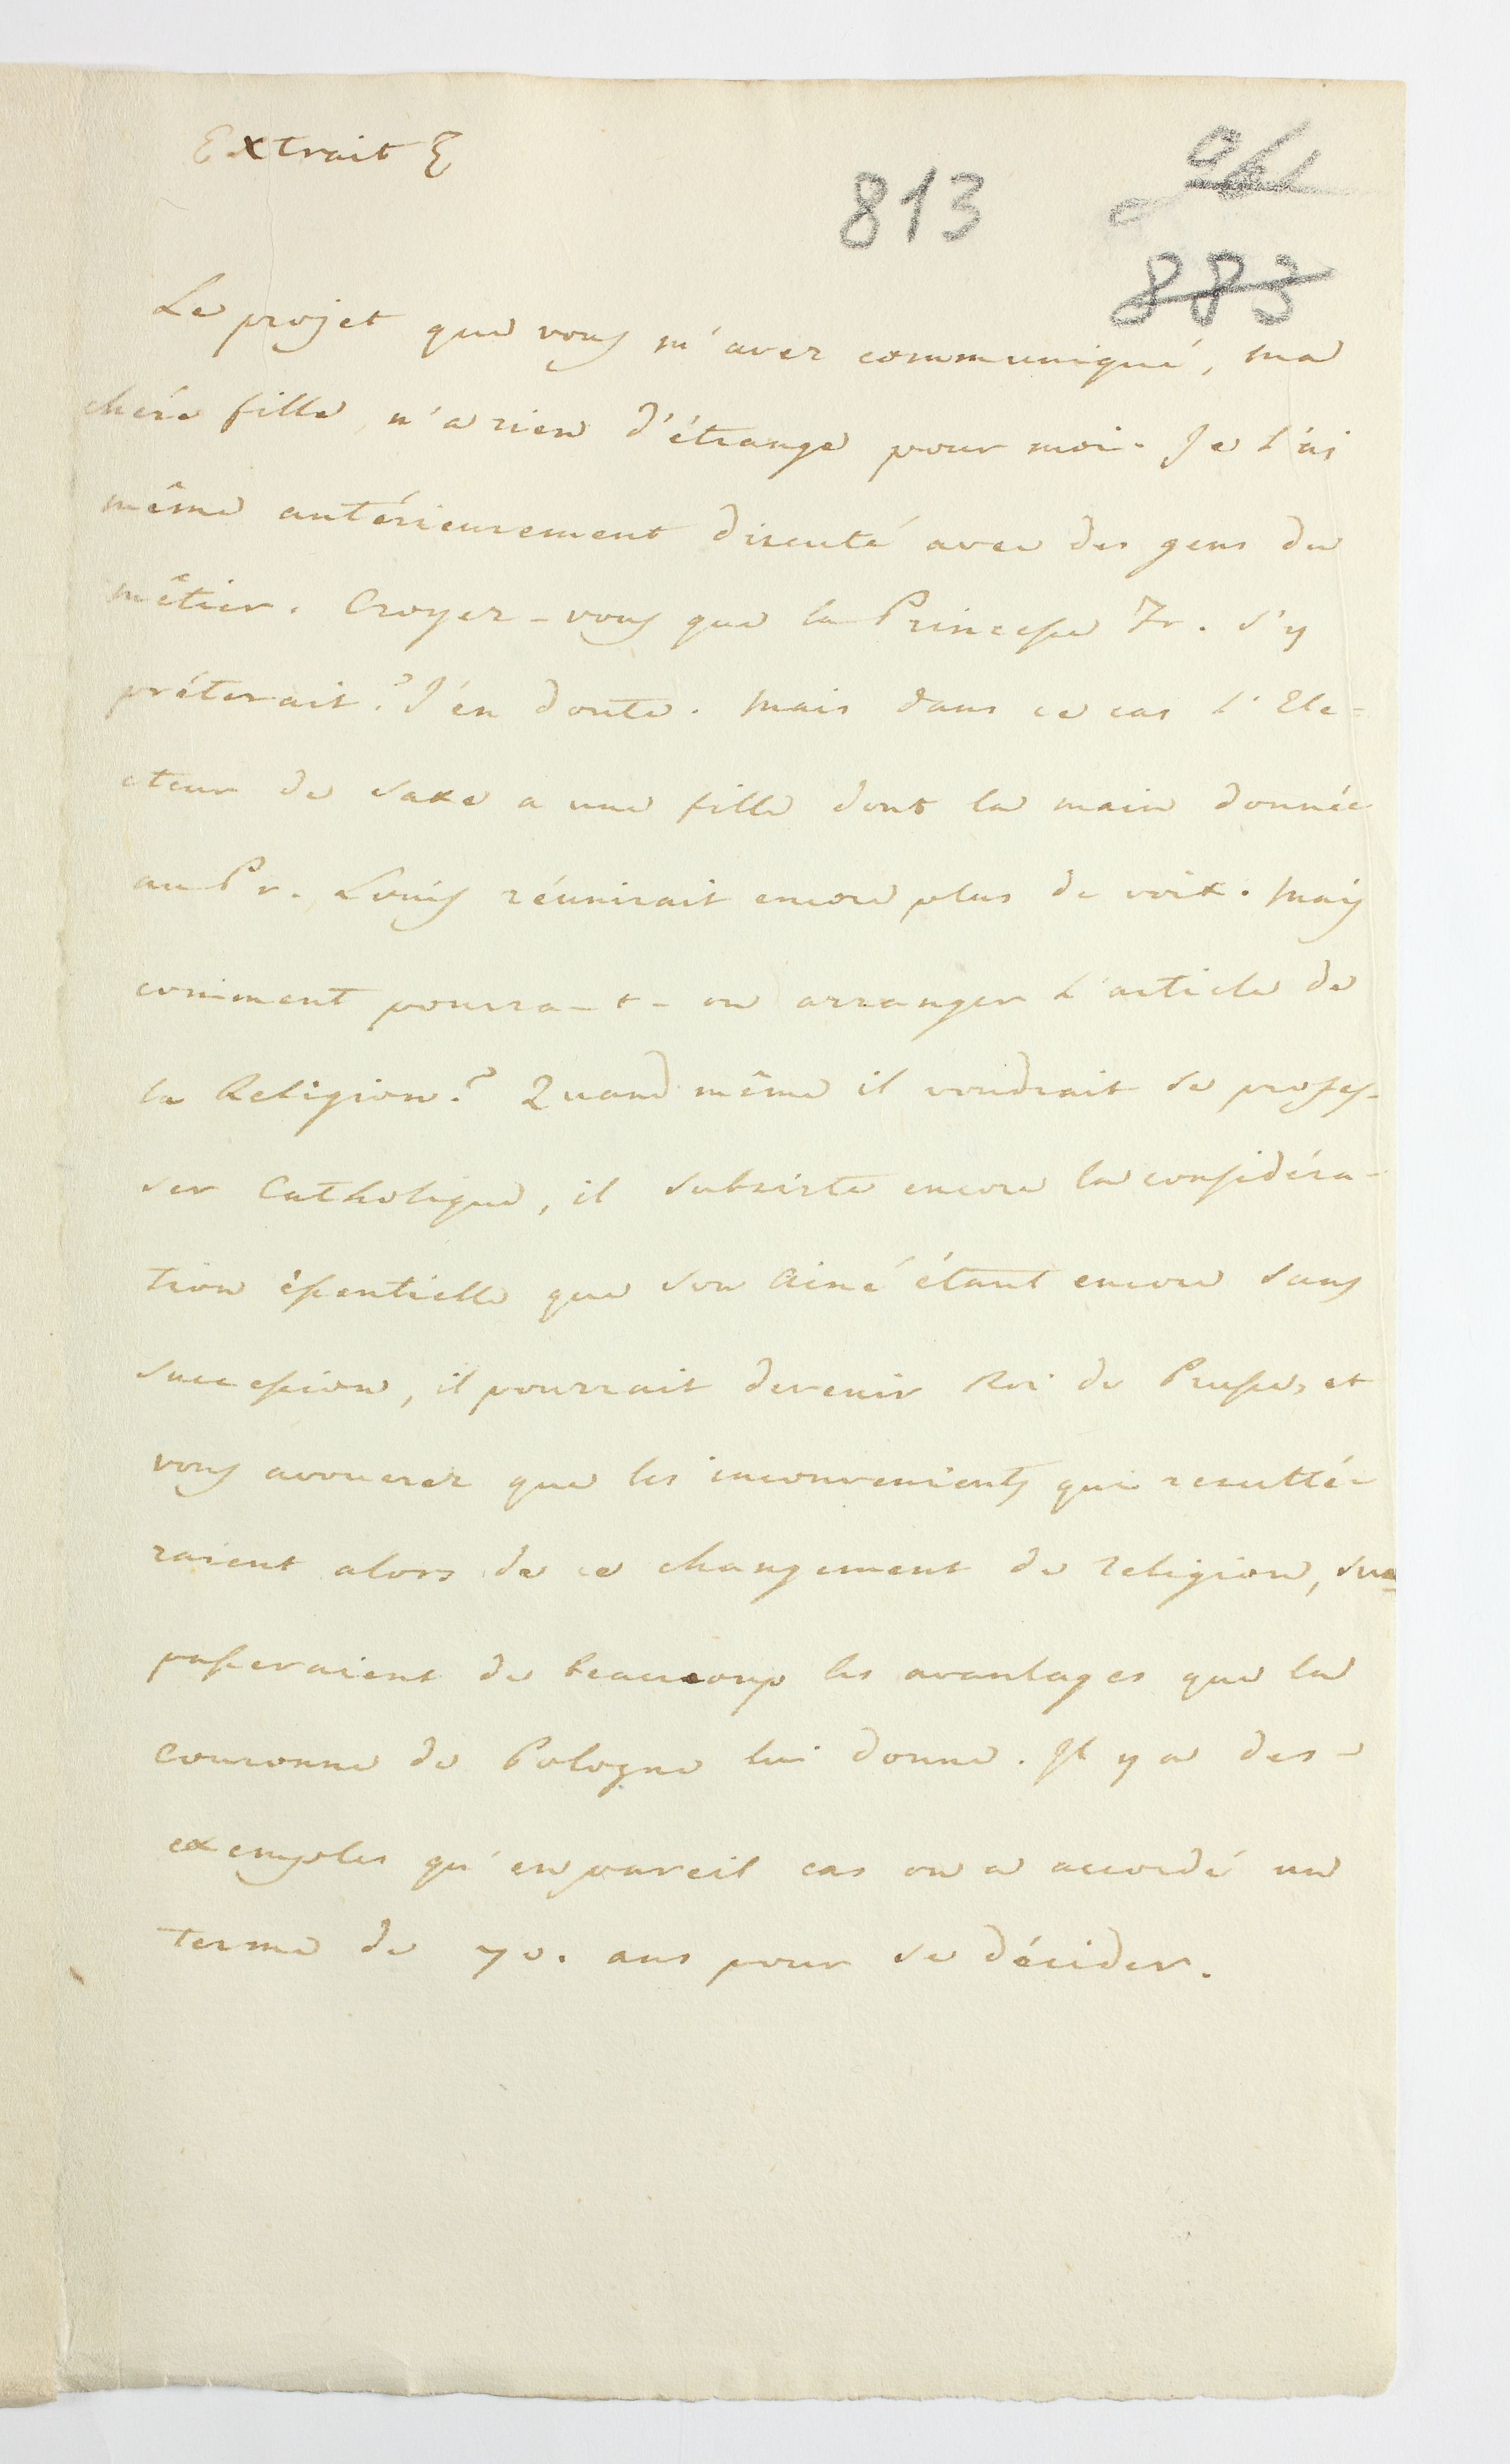 Extrait E
813
883
Le projet que vous m'avez communiqué, ma
chére fille, n'a rien d'étrange pour moi. Je l'ai
même antérieurement discuté avec des gens du
mêtier. Croyez-vous que la Princesse Fr. s'y
préterait? J'en doute. Mais dans ce cas l'Ele=
cteur de Saxe a une fille dont la main donnée
au Pr. Louis réunirait encore plus de voix. Mais
comment pourra-t-on arranger l'article de
la Religion? Quand même il voudrait se profes-
ser Catholique, il subsiste encore la considéra-
tion éssentielle que son Ainé étant encore sans
succession, il pourrait devenir Roi de Prusse, et
vous avouerez que les inconvenients qui resulté-
raient alors de ce changement de religion, sur
passeraient de beaucoup les avantages que la
couronne de Pologne lui donne. Il y a des
exemples qu'en pareil cas on a accordé un
terme de 70. ans pour se décider.